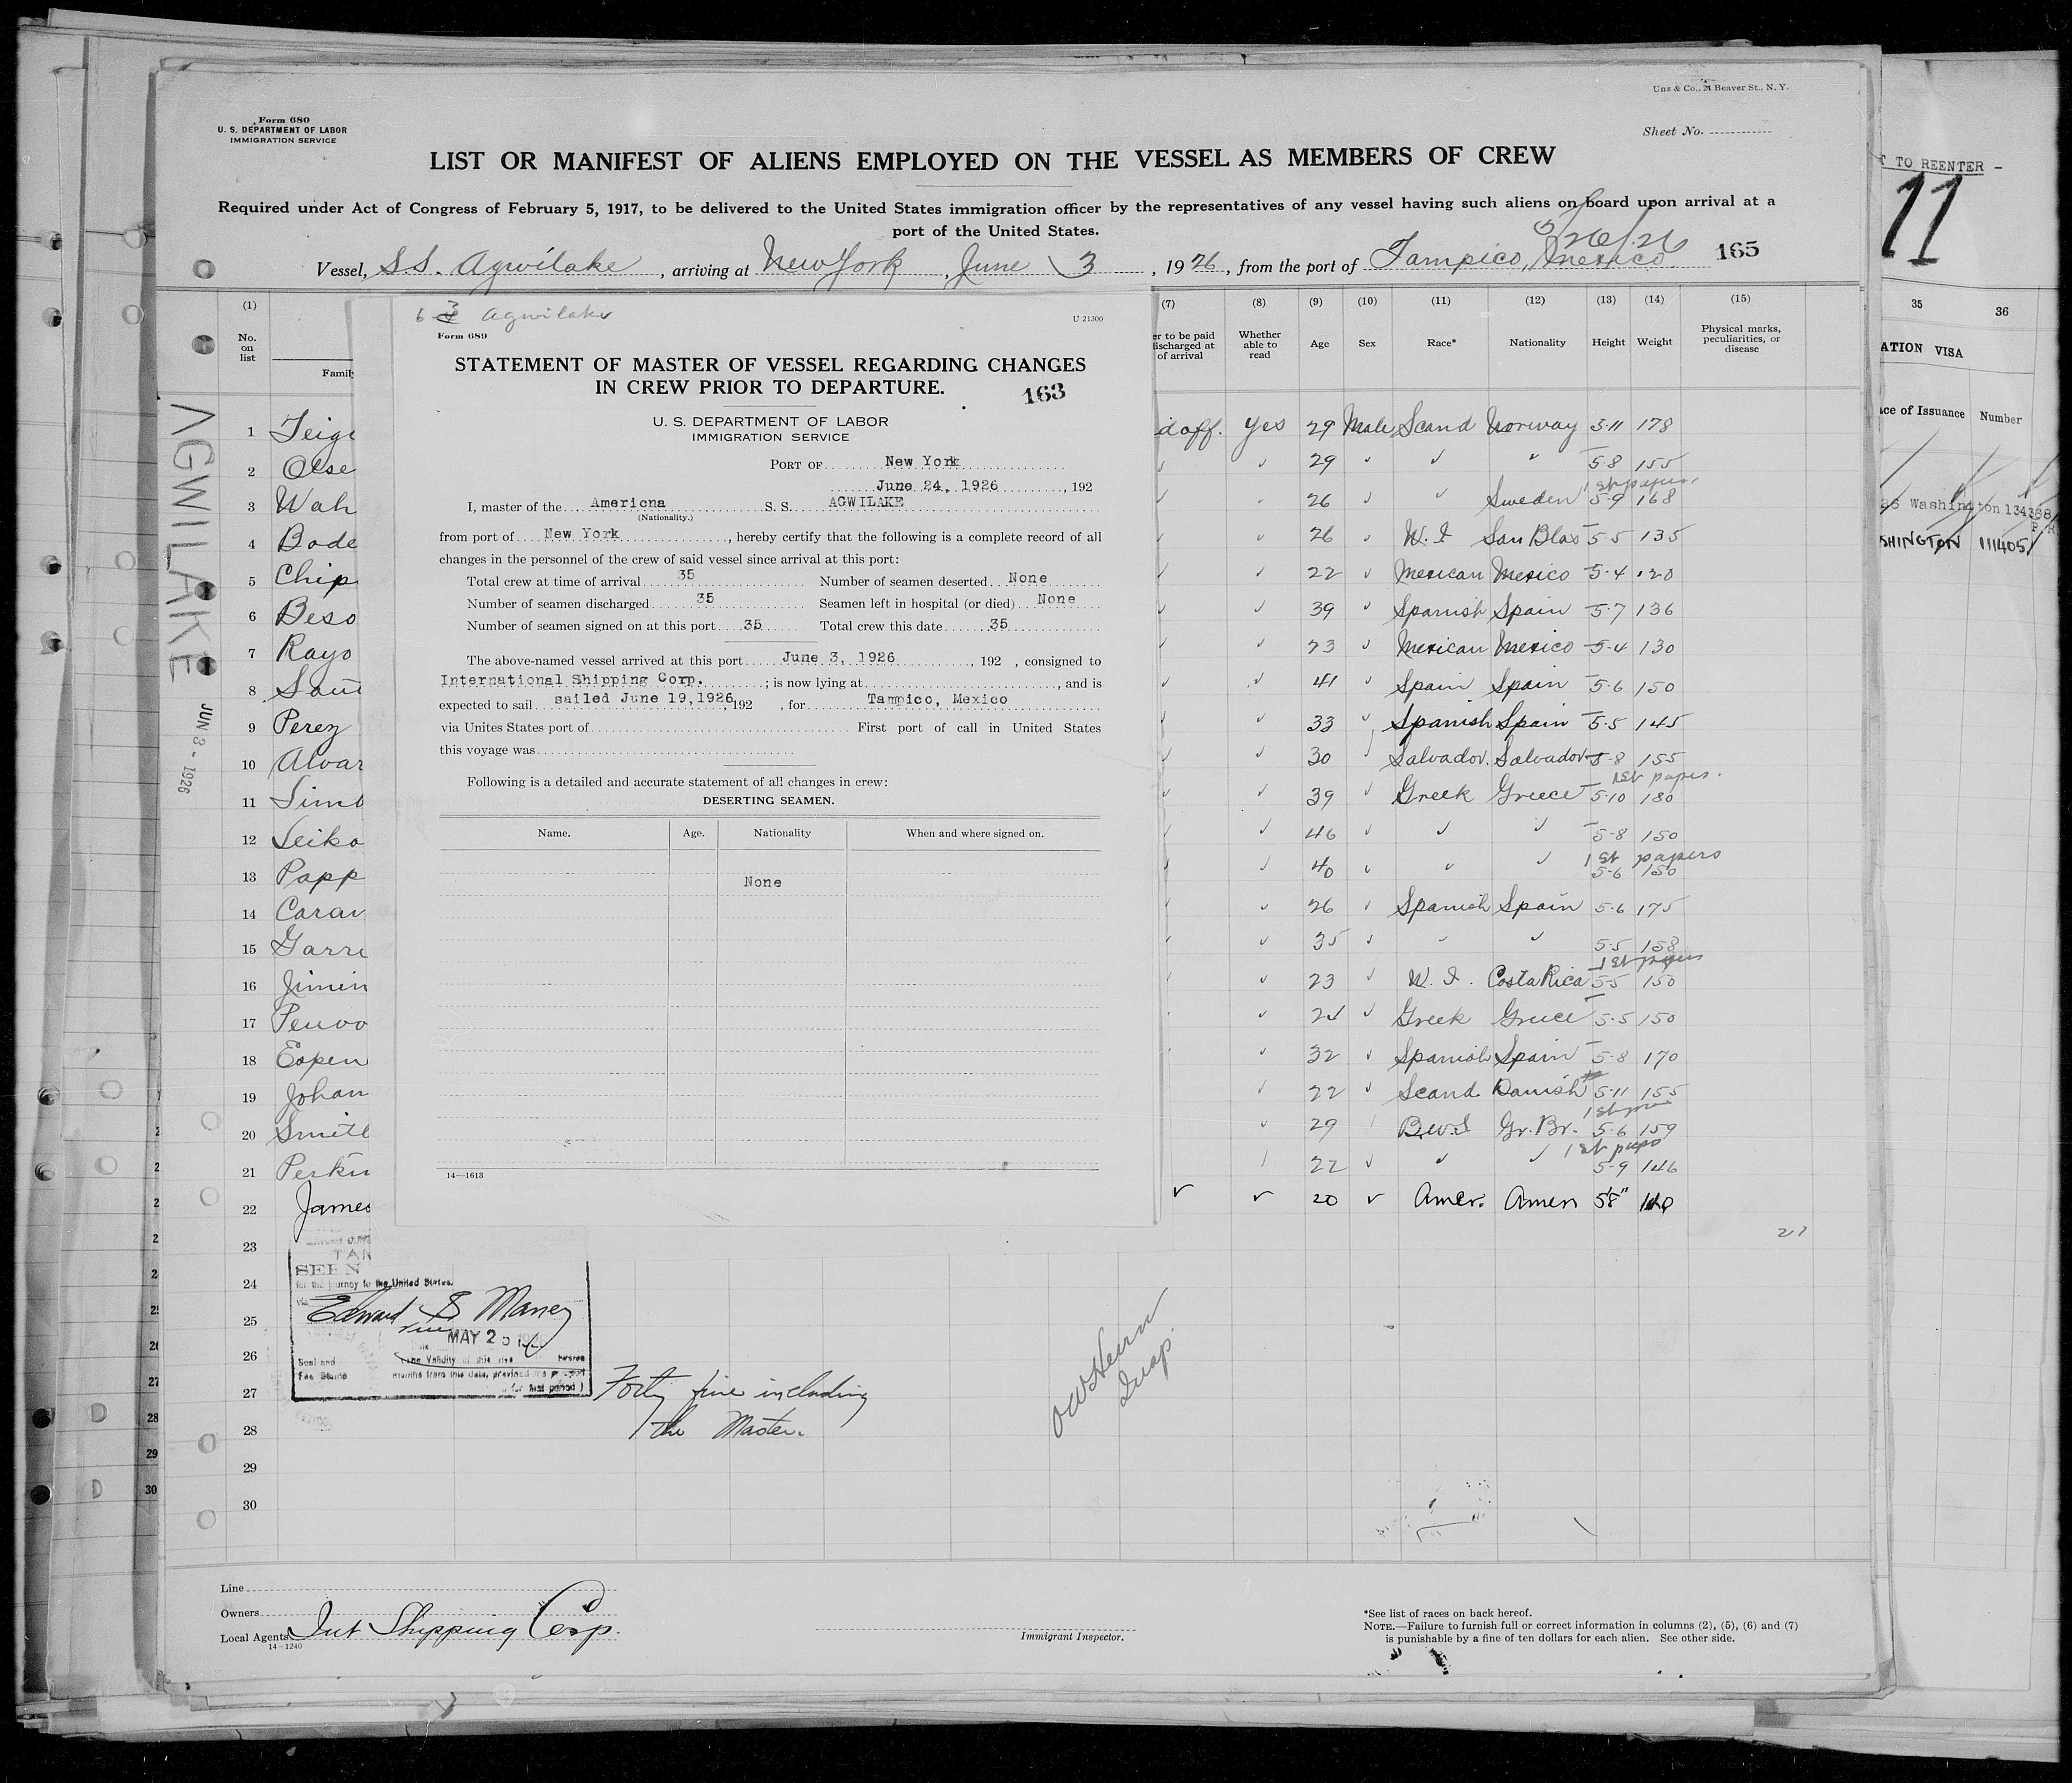 Unz & Co., 24 Beaver St., N. Y.
Form 680
U. S. DEPARTMENT OF LABOR
IMMIGRATION SERVICE
Sheet No.
LIST OR MANIFEST OF ALIENS EMPLOYED ON THE VESSEL AS MEMBERS OF CREW
Required under Act of Congress of February 5, 1917, to be delivered to the United States immigration officer by the representatives of any vessel having such aliens on board upon arrival at a
port of the United States.
5/26/26
Vessel, SS. Agwilake, arriving at New York, June 3, 1926, from the port of Tampico, Mexico. 165
T TO REENTER -
11
35 36
ATION VISA
ace of Issuance Number
Washington 134368
SHINGTON 111405
AGWILAKE
JUN 3 - 1926
(1) (7) (8) (9) (10) (11) (12) (13) (14) (15)
No. on list
Famil
er to be paid
discharged at
of arrival
Whether able to read
Age Sex Race* Nationality Height Weight
Physical marks, peculiarities, or disease
1 Teige d off. Yes 29 Male Scand Norway 5-11 178
2 Olse 29 5-8 155
1st papers
3 Wah 26 Sweden 5-9 168
4 Bode 26 W.I San Blas 5-5 135
5 Chip 22 Mexican Mexico 5-4 120
6 Beso 39 Spanish Spain 5-7 136
7 Rayo 23 Mexican Mexico 5-4 130
8 41 Spain Spain 5-6 150
9 Perez 33 Spanish Spain 5-5 145
10 Alvar 30 Salvador. Salvador 5-8 155
1st papers.
11 39 Greek Greece 5-10 180
12 Leiko 46 5-8 150
1st papers
13 Papp 40 5-6 150
14 Carav 26 Spanish Spain 5-6 175
15 Garre 35 5-5 158
1st papers
16 Jimin 23 W. I. Costa Rica 5-5 150
17 24 Greek Greece 5-5 150
18 Espen 32 Spanish Spain 5-8 170
19 Johan 22 Scand. Danish 5-11 155
20 Smitl 29 B.W.I Gr. Br. 5-6 159
21 Perkin 22 5-9 146
22 James 20 Amer. Amer 5'8"
23
24
25
26
27
28
29
30
6 3 Agwilake
U 21300
Form 689
STATEMENT OF MASTER OF VESSEL REGARDING CHANGES
IN CREW PRIOR TO DEPARTURE.
163
U. S. DEPARTMENT OF LABOR
IMMIGRATION SERVICE
PORT OF New York
June 24, 1926, 192
I, master of the Americna S. S. AGWILAKE
(Nationality.)
from port of New York, hereby certify that the following is a complete record of all
changes in the personnel of the crew of said vessel since arrival at this port:
Total crew at time of arrival 35 Number of seamen deserted None
Number of seamen discharged 35 Seamen left in hospital (or died) None
Number of seamen signed on at this port 35 Total crew this date 35
The above-named vessel arrived at this port June 3, 1926, 192 , consigned to
International Shipping Corp. ; is now lying at , and is
expected to sail sailed June 19,1926, 192 , for Tampico, Mexico
via Unites States port of First port of call in United States
this voyage was
Following is a detailed and accurate statement of all changes in crew:
DESERTING SEAMEN.
Name. Age. Nationality When and where signed on.
None
14—1613
27
SEEN
for the journey to the United States.
Edward S Maney
MAY 25
Seal and
Fee Stamp
Forty five including
the Master.
Line
Owners
Local Agents Int Shipping Corp.
14—1240
Immigrant Inspector.
*See list of races on back hereof.
NOTE.—Failure to furnish full or correct information in columns (2), (5), (6) and (7)
is punishable by a fine of ten dollars for each alien. See other side.